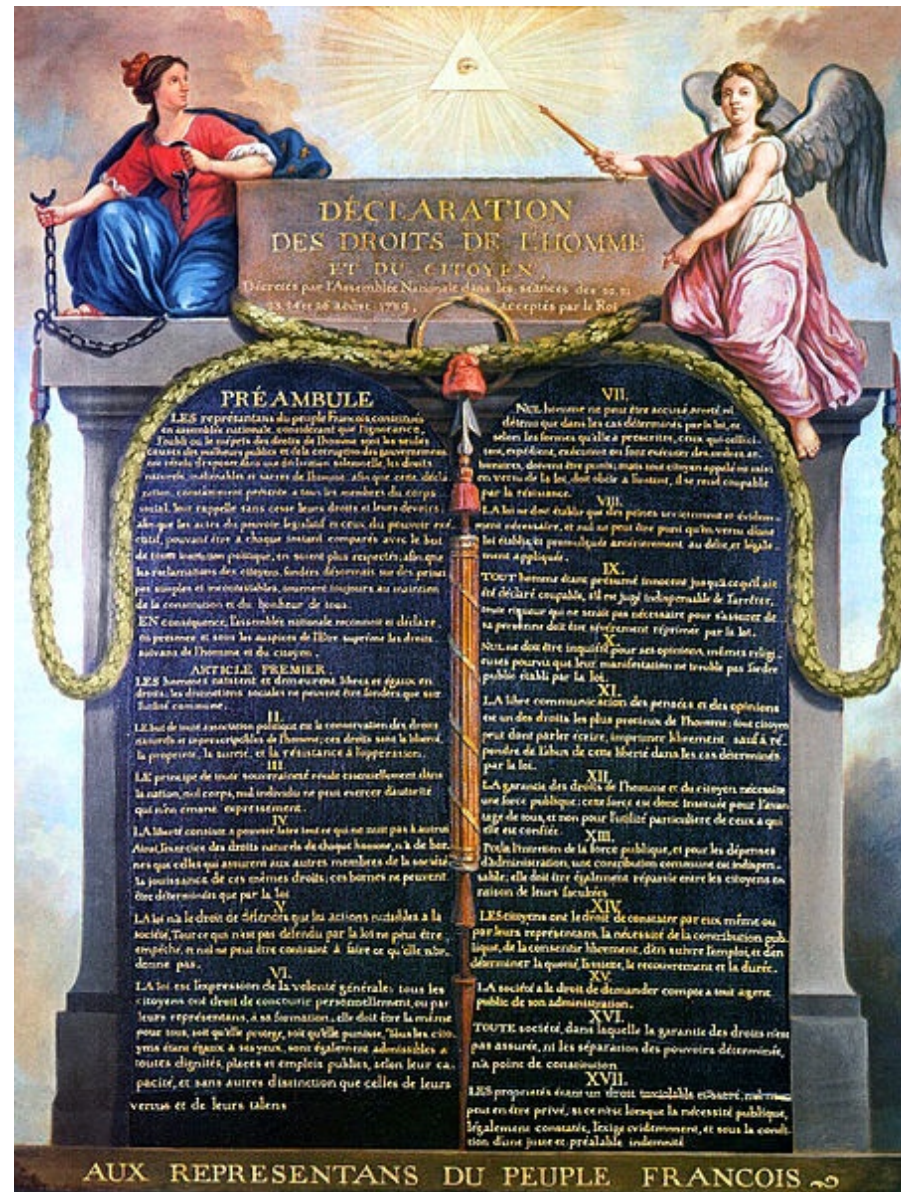 DÉCLARATION
DES DROITS DE L'HOMME
ET DU CITOYEN,
Décretés par l'Assemblée Nationale dans les séances des 20. 21
23. 24 et 26 août 1789, acceptés par le Roi
PRÉAMBULE
LES représentans du peuple François, constitués
en assemblée nationale, considérant que l'ignorance,
l'oubli ou le mépris des droits de l'homme sont les seules
causes des malheurs publics et de la corruption des gouvernemens
ont résolu d'exposer dans une déclaration solemnelle, les droits
naturels, inaliénables et sacrés de l'homme: afin que cette décla
ration, constamment présente a tous les membres du corps
social, leur rappelle sans cesse leurs droits et leurs devoirs
afin que les actes du pouvoir législatif et ceux du pouvoir exé
cutif, pouvant être à chaque instant comparés avec le but
de toute institution politique, en soient plus respectés; afin que
les réclamations des citoyens, fondées désormais sur des princi
pes simples et incontestables, tournent toujours au maintien
de la constitution et du bonheur de tous.
EN conséquence, l'assemblée nationale reconnoit et déclare
en présence et sous les auspices de l'Etre suprême les droits
suivans de l'homme et du citoyen.
ARTICLE PREMIER
LES hommes naissent et demeurent libres et égaux en
droits. les distinctions sociales ne peuvent être fondées que sur
l'utilité commune.
II.
LE but de toute association politique est la conservation des droits
naturels et imprescriptibles de l'homme; ces droits sont la liberté,
la propriété, la sureté, et la résistance à l'oppression.
III
LE principe de toute souveraineté réside essentiellement dans
la nation, nul corps, nul individu ne peut exercer d'autorité
qui n'en émane expressement.
IV.
LA liberté consiste a pouvoir faire tout ce qui ne nuit pas à autrui
Ainsi, l'exercice des droits naturels de chaque homme, n'a de bor
nes que celles qui assurent aux autres membres de la société
la jouissance de ces mêmes droits; ces bornes ne peuvent
être déterminées que par la loi
V.
LA loi n'a le droit de défendre que les actions nuisibles à la
société. Tout ce qui n'est pas defendu par la loi ne peut être
empêché, et nul ne peut être contraint à faire ce qu'elle n'or-
donne pas.
VI.
LA loi est l'expression de la volonté générale; tous les
citoyens ont droit de concourir personnellement, ou par
leurs représentans, à sa formation; elle doit être la même
pour tous, soit qu'elle protege, soit qu'elle punisse, Tous les cito
yens étant égaux à ses yeux, sont également admissibles a
toutes dignités, places et emplois publics, selon leur ca-
pacité, et sans autres distinction que celles de leurs
vertus et de leurs talens
VII.
NUL homme ne peut être accusé, arreté ni
détenu que dans les cas déterminés par la loi, et
selon les formes qu'elle à prescrites, ceux qui sollici-
tent, expédient, exécutent ou font exécuter des ordres ar-
bitraires, doivent être punis; mais tout citoyen appelé ou saisi
en vertu de la loi, doit obéir a l'instant, il se rend coupable
par la résistance.
VIII.
LA loi ne doit établir que des peines strictement et évidem-
ment nécessaire, et nul ne peut être puni qu'en vertu d'une
loi établie, et promulguée antérieurement au délit, et légale-
ment appliquée.
IX.
TOUT homme étant présumé innocent jusqu'à ce qu'il ait
été déclaré coupable, s'il est jugé indispensable de l'arrêter,
toute rigueur qui ne serait pas nécessaire pour s'assurer de
sa personne doit être sévèrement réprimée par la loi.
X.
NUL ne doit être inquiété pour ses opinions, mêmes religi
euses pourvu que leur manifestation ne trouble pas l'ordre
public établi par la loi.
XI.
LA libre communication des pensées et des opinions
est un des droits les plus precieux de l'homme; tout citoyen
peut dont parler écrire, imprimer librement: sauf à ré-
pondre de l'abus de cette liberté dans les cas déterminés
par la loi.
XII.
LA garantie des droits de l'homme et du citoyen nécessite
une force publique; cette force est donc instituée pour l'avan
tage de tous, et non pour l'utilité particuliere de ceux a qui
elle est confiée.
XIII.
Pour l'entretien de la force publique, et pour les dépenses
d'administration, une contribution commune est indispen-
sable; elle doit être également répartie entre les citoyens en
raison de leurs facultées
XIV.
LES citoyens ont le droit de constater par eux même ou
par leurs représentans, la nécessité de la contribution pub-
lique, de la consentir librement, d'en suivre l'emploi, et d'en
déterminer la quotité, l'assiette, le recouvrement et la durée.
XV.
LA société a le droit de demander compte a tout agent
public de son administration.
XVI.
TOUTE société, dans laquelle la garantie des droits n'est
pas assurée, ni les séparation des pouvoirs déterminée,
n'a point de constitution
XVII.
LES propriétés étant un droit inviolable et sacré, nul ne
peut en être privé, si ce n'est lorsque la nécessité publique,
légalement constatée, l'exige évidemment, et sous la condi-
tion d'une juste et préalable indemnité
AUX REPRESENTANS DU PEUPLE FRANCOIS